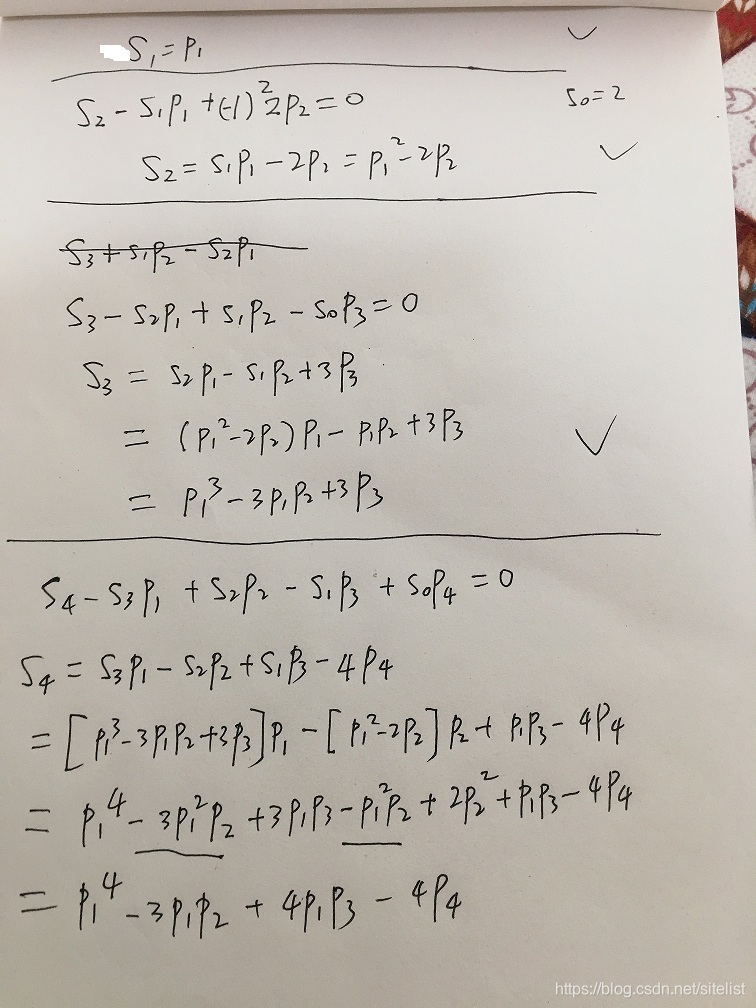 S₁ = P₁
S₂ - S₁P₁ + (-1)² 2P₂ = 0
S₀ = 2
S₂ = S₁P₁ - 2P₂ = P₁² - 2P₂
S₃ + S₁P₂ - S₂P₁
S₃ - S₂P₁ + S₁P₂ - S₀P₃ = 0
S₃ = S₂P₁ - S₁P₂ + 3P₃
= (P₁² - 2P₂) P₁ - P₁P₂ + 3P₃
= P₁³ - 3P₁P₂ + 3P₃
S₄ - S₃P₁ + S₂P₂ - S₁P₃ + S₀P₄ = 0
S₄ = S₃P₁ - S₂P₂ + S₁P₃ - 4P₄
= [P₁³ - 3P₁P₂ + 3P₃] P₁ - [P₁² - 2P₂] P₂ + P₁P₃ - 4P₄
= P₁⁴ - 3P₁²P₂ + 3P₁P₃ - P₁²P₂ + 2P₂² + P₁P₃ - 4P₄
= P₁⁴ - 3P₁P₂ + 4P₁P₃ - 4P₄
https://blog.csdn.net/sitelist